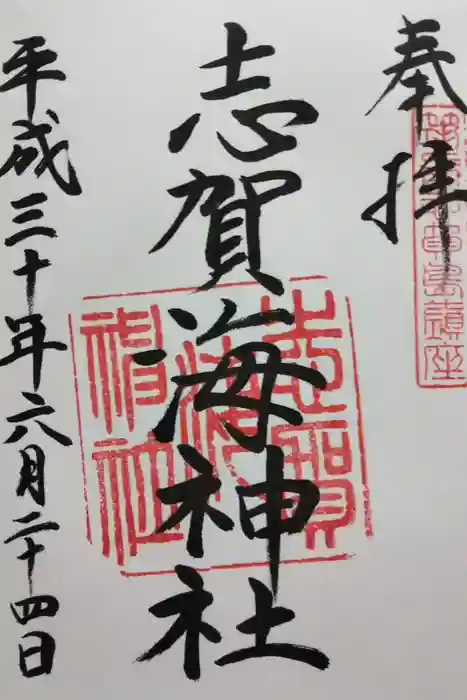 奉拝
志賀海神社
平成三十年六月二十四日
志賀海神社